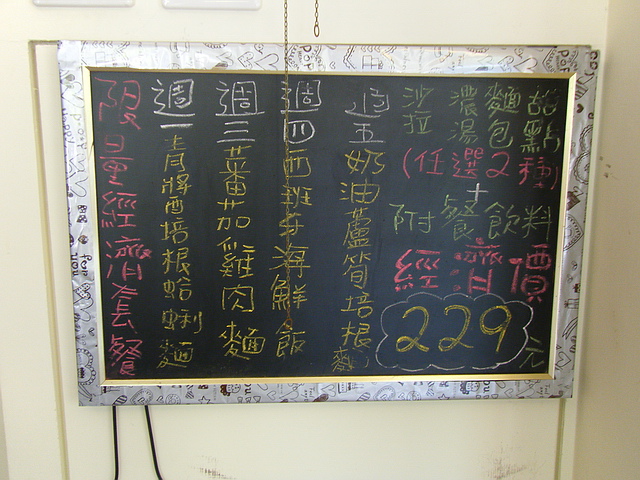 限量經濟套餐
週一 青醬培根蛤蜊麵
週三 蕃茄雞肉麵
週四 西班牙海鮮飯
週五 奶油蘆筍培根麵
沙拉 濃湯 麵包 甜點
(任選2種)
+
附餐飲料
經濟價
229元